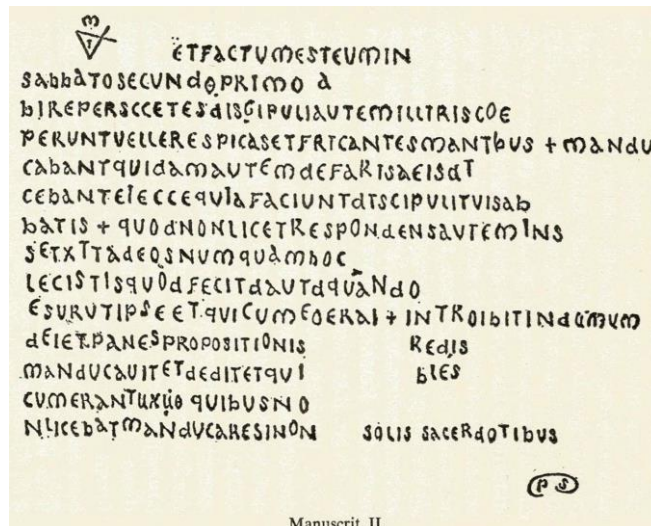 ETFACTUMESTEUMIN
SABBATOSECUNdOPRIMO A
bIREPERSCCETESdISGIPULIAUTEMILLITRISCOE
PERUNTVELLERESPICASETFRICANTESMANTbUS + MANdU
CABANTQUIdAMAUTEMdEFARISAEISdT
CEBANTEIECCEQUIAFACIUNTdTSCIPULITVISAb
bATIS + QUOdNONLICETRESPONdENSAUTEMINS
SETXTTAdEOSNUMQUAMhOC
LECISTISQUOdFECITdAUTdQUANdO
ESURUTIPSEETQUICUMEOERAI + INTROIBITINdUMUM
dEIETPANESPROPOSITIONIS REdIS
MANdUCAUITETdEdITETQUI bLES
CUMERANTUXUO QUIBUSNO
NLICEbATMANdUCARESINON SOLIS SACERdOTIbUS
PS
Manuscrit II